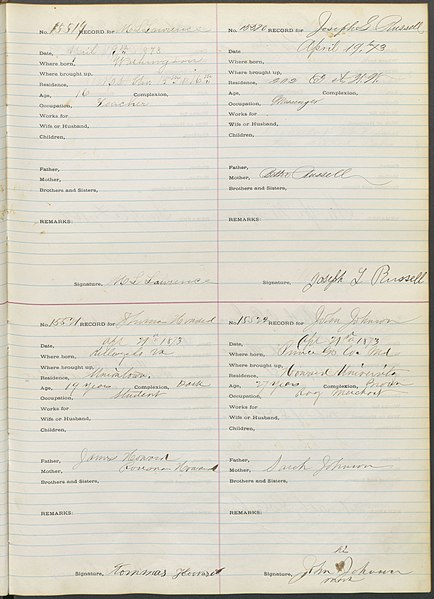 RECORD for M. L. Lawrence
Date, April 1873
Where born, Washington
Where brought up,
Residence,
Age, 16 Complexion,
Occupation, Teacher
Works for
Wife or Husband,
Children,
Father,
Mother,
Brothers and Sisters,
REMARKS:
Signature, Lawrence
No. RECORD for Joseph L Russell
Date, April 19, 73
Where born,
Where brought up,
Residence, N.W.
Age, Complexion,
Occupation, Messenger
Works for
Wife or Husband,
Children,
Father,
Mother, Russell
Brothers and Sisters,
REMARKS:
Signature, Joseph L Russell
No. RECORD for Howard
Date, Apl 1873
Where born, Va
Where brought up,
Residence, Uniontown
Age, 19 years Complexion, Dark
Occupation, Student
Works for
Wife or Husband,
Children,
Father, James Howard
Mother, Howard
Brothers and Sisters,
REMARKS:
Signature, Tommas Howard
No. 15522 RECORD for John Johnson
Date, Apl 1873
Where born, Prince Geo Co. Md
Where brought up,
Residence, Howard University
Age, 27 years Complexion, Brown
Occupation, Rag Merchant
Works for
Wife or Husband,
Children,
Father,
Mother, Sarah Johnson
Brothers and Sisters,
REMARKS:
his
Signature, John Johnson
mark